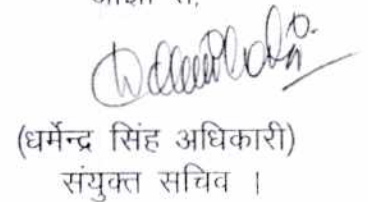 (धर्मेन्द्र सिंह अधिकारी)
संयुक्त सचिव ।